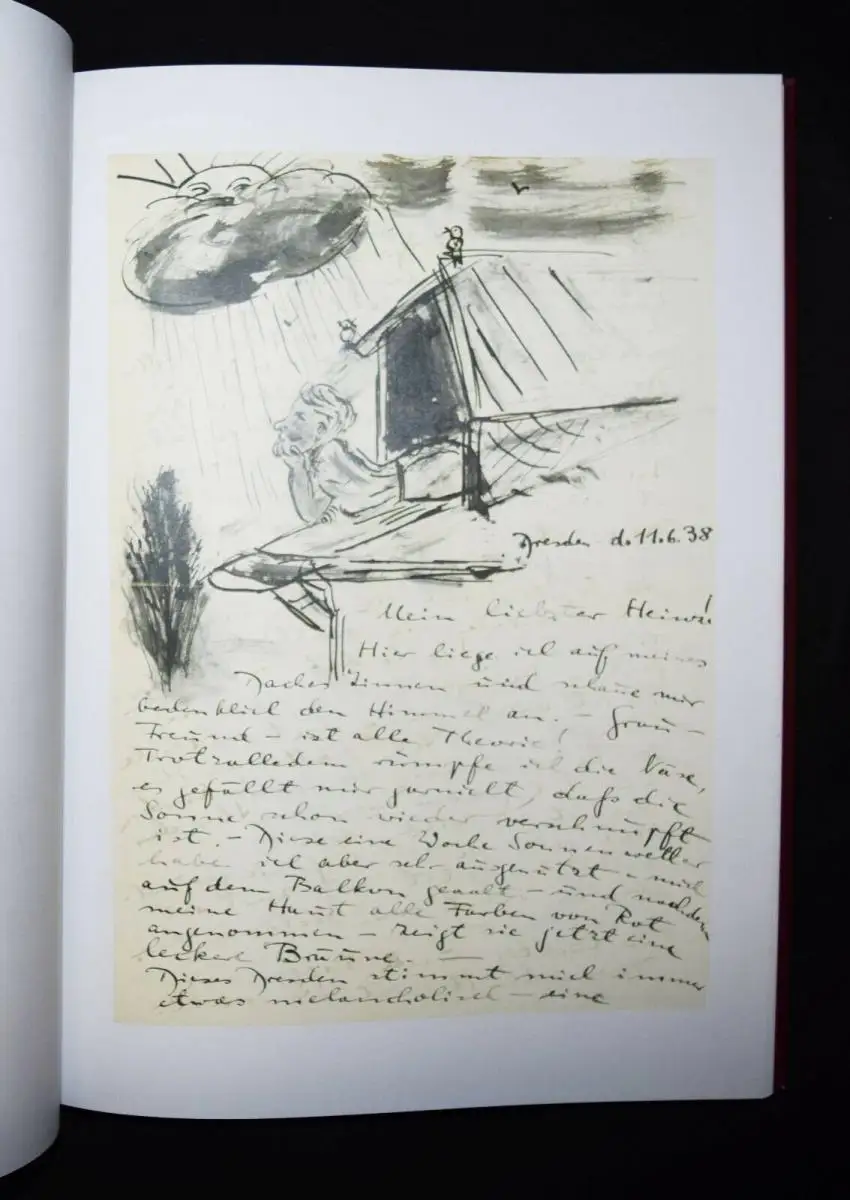 Dresden d. 11.6.38
Mein liebster Heinz!
Hier liege ich auf meines
Daches Zinnen und schaue mir
bedenklich den Himmel an. – Grau –
Freund – ist alle Theorie!
Trotzalledem rümpfe ich die Nase,
es gefällt mir garnicht, daß die
Sonne schon wieder verschnupft
ist. – Diese eine Woche Sonnenwetter
habe ich aber sehr ausgenützt u. mich
auf dem Balkon geaalt – und nachdem
meine Haut alle Farben von Rot
angenommen – zeigt sie jetzt eine
leckere Bräune. –
Dieses Dresden stimmt mich immer
etwas melancholisch – eine